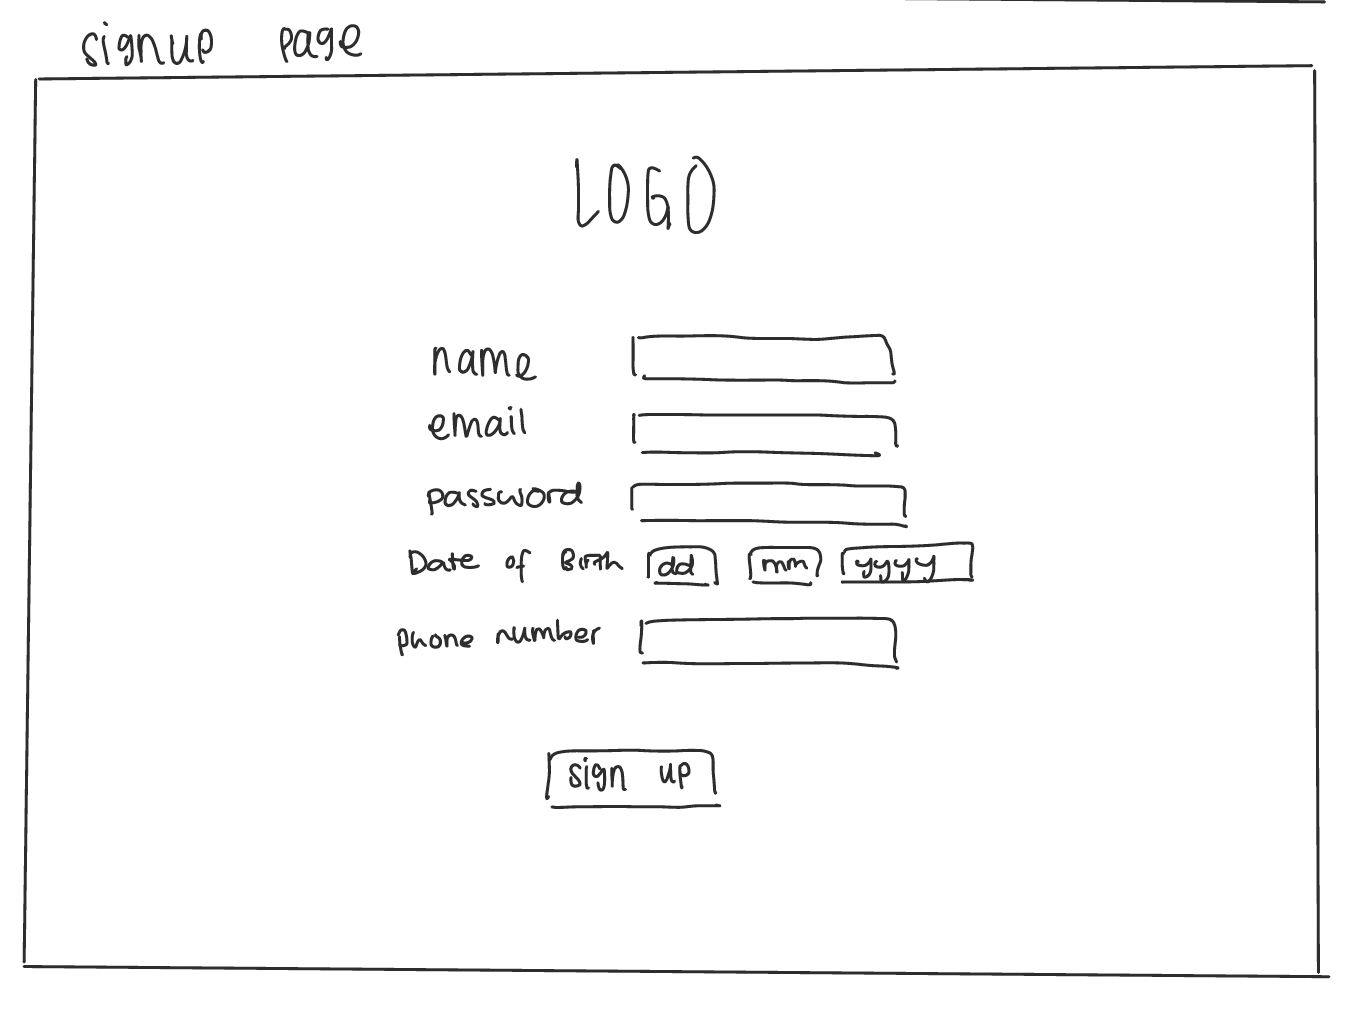 signup page
LOGO
name
email
password
Date of Birth dd mm yyyy
phone number
sign up